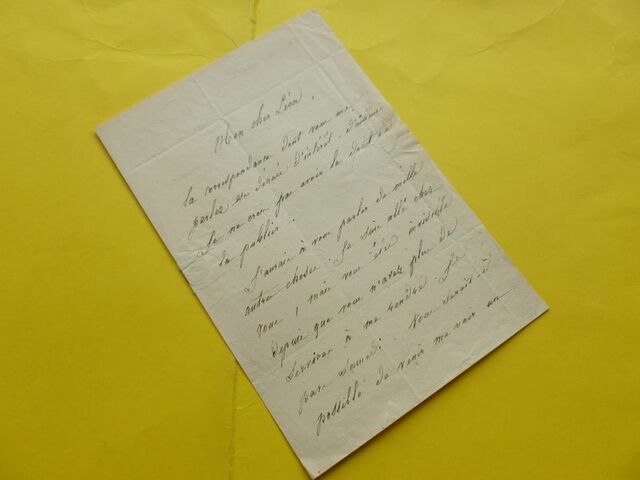 Mon cher Léon,
La correspondance dont vous me
parlez est dénuée d'intérêt. D'ailleurs
Je ne crois pas avoir le droit de
la publier.
J'aurais à vous parler de mille
autres choses. Je suis allé chez
vous, mais vous êtes invisible
depuis que vous n'avez plus de
services à me rendre. Je
pars Samedi. Vous serait-il
possible de venir me voir un